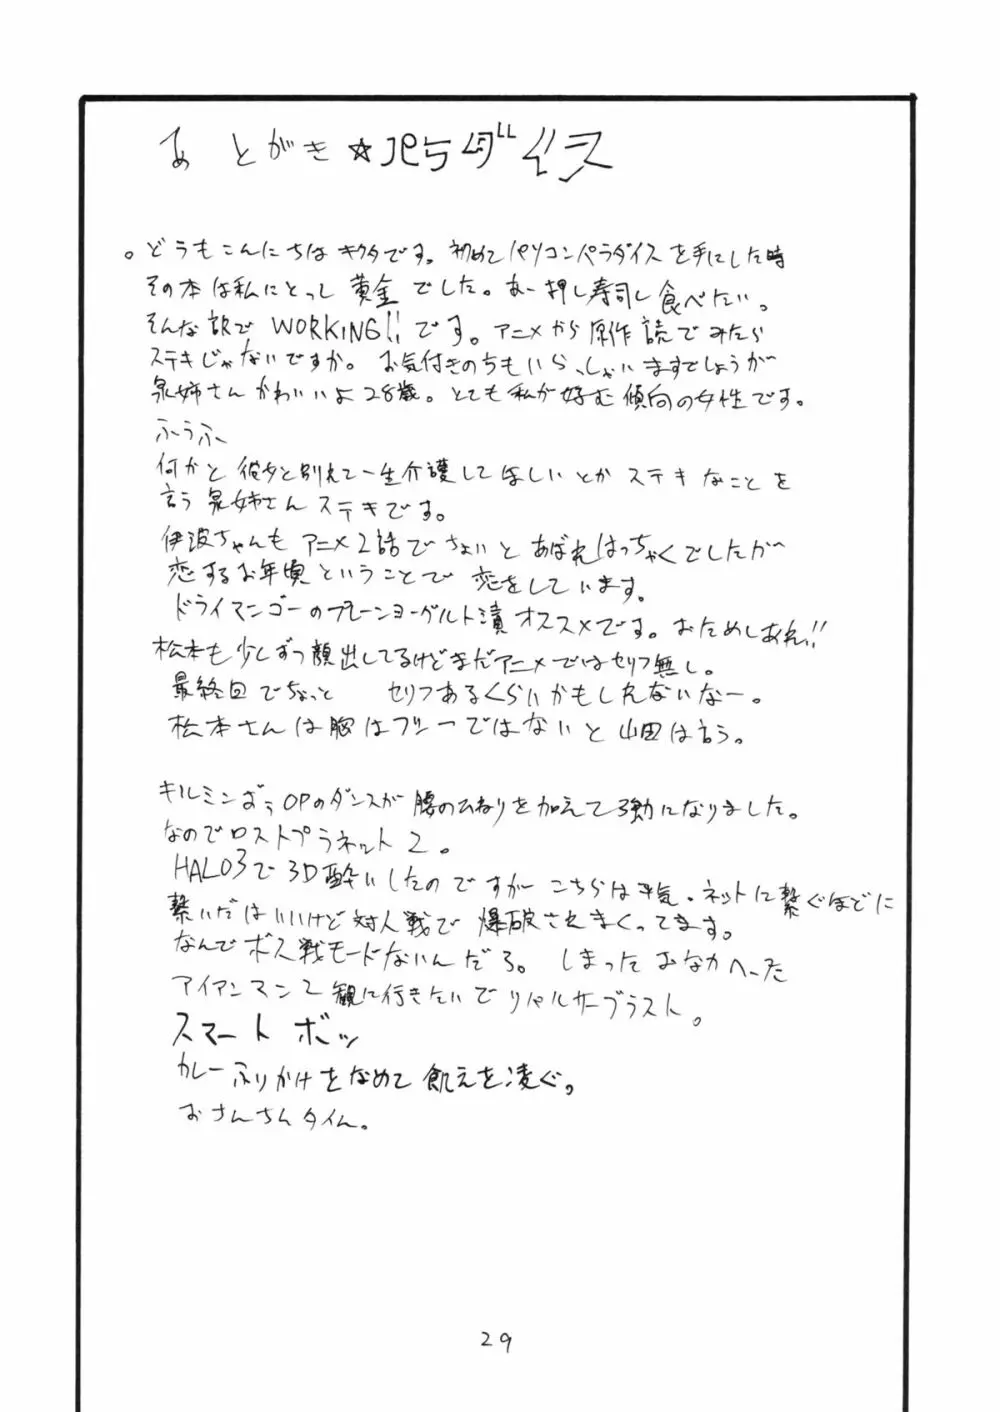 あとがき☆パラダイス
。どうもこんにちはキクタです。初めてパソコンパラダイスを手にした時
その本は私にとって黄金でした。あー押し寿司し食べたい。
そんな訳でWORKING!!です。アニメから原作読でみたら
ステキじゃないですか。お気付きのちもいらっしゃいますでしょうが
泉姉さんかわいいよ28歳。とても私が好む傾向の女性です。
ふうふ
何かと彼女と別れて一生介護してほしいとかステキなことを
言う泉姉さんステキです。
伊波ちゃんもアニメ2話でちょいとあばれはっちゃくでしたが
恋するお年頃ということで恋をしています。
ドライマンゴーのプレーンヨーグルト漬オススメです。おためしあれ!!
松本も少しずつ顔出ししてるけどまだアニメではセリフ無し。
最終回でちょっと セリフあるくらいかもしれないなー。
松本さんは胸はフツーではないと山田は言う。
キルミンずぅOPのダンスが腰のひねりを加えて3割になりました。
なのでロストプラネット2。
HALO3で3D酔いしたのですがこちらは平気。ネットに繋ぐほどに
繋いだはいいけど対人戦で爆破されまくってます。
なんでボス戦モードないんだろ。しまったおなかへった
アイアンマン2観に行きたいでリパルサーブラスト。
スマートボッ
カレーふりかけをなめて飢えを凌ぐ。
おさんちんタイム。
29